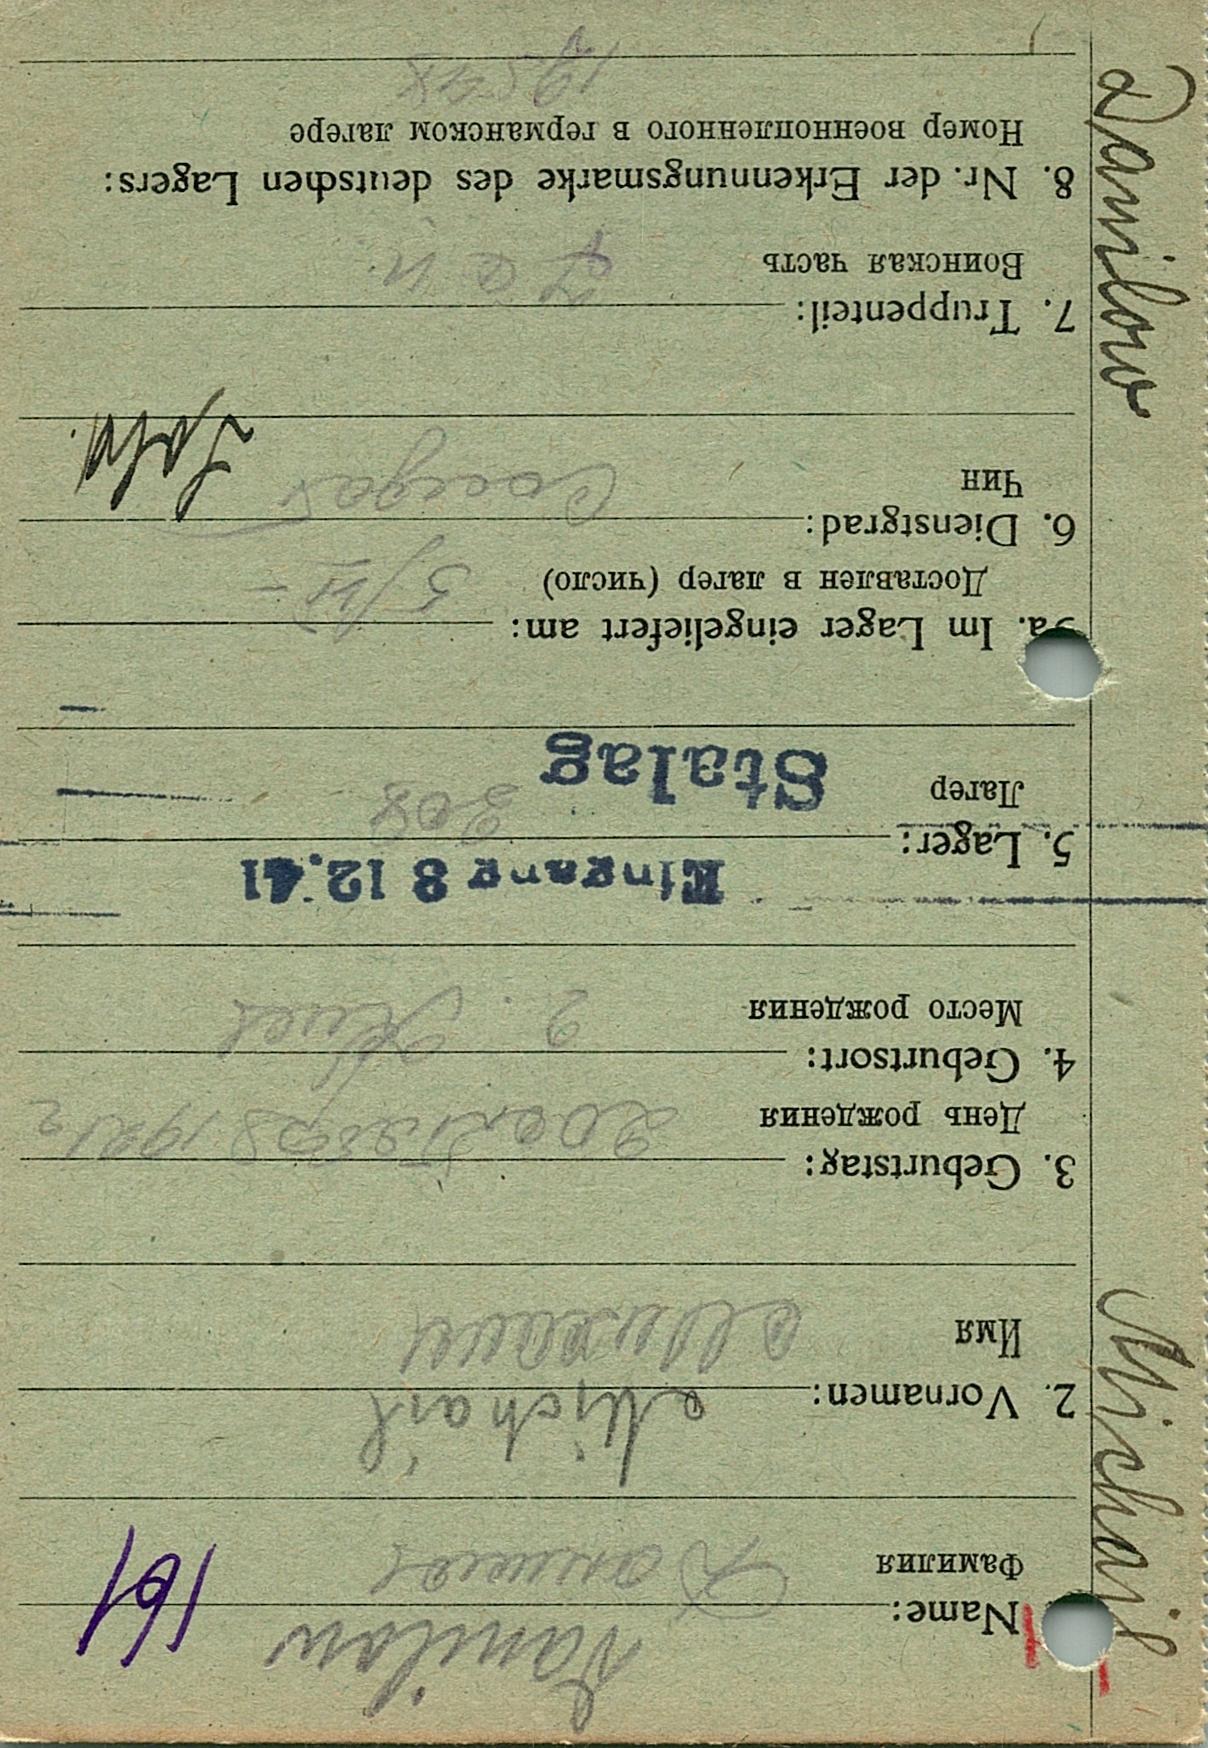 Danilow Michail
Danilow
Name:
Фамилия
161
Michail
2. Vornamen:
Имя Михаил
3. Geburtstag:
День рождения
4. Geburtsort:
Место рождения
Eingang 8 12.41
5. Lager:
Лагерь 308
Stalag
5a. Im Lager eingeliefert am:
Доставлен в лагерь (число)
6. Dienstgrad:
Чин Солдат
Sold.
7. Truppenteil:
Воинская часть
8. Nr. der Erkennungsmarke des deutschen Lagers:
Номер военнопленного в германском лагере